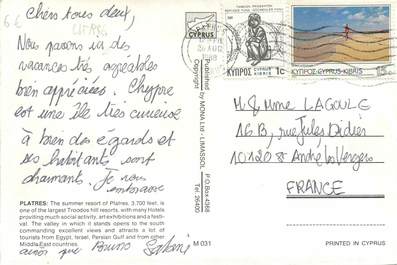 Chers tous deux,
Nous passons ici des
vacances très agréables
bien appréciées. Chypre
est une île très curieuse
à bien des égards et
ses habitants sont
charmants. Je vous
embrasse
ainsi que Bruno
PLATRES: The summer resort of Platres, 3.700 feet, is
one of the largest Troodos hill resorts, with many Hotels
providing much social activity, art exhibitions and a festi-
val. The valley in which it stands opens to the south
commanding excellent views and attracts a lot of
tourists from Egypt, Israel, Persian Gulf and from other
Middle-East countries.
M 031
CYPRUS
Published by
Copyright MOYA Ltd - LIMASSOL
P.O.Box 4368
Tel. 26400
1988
ΚΥΠΡΟΣ
CYPRUS
KIBRIS
1c
ΚΥΠΡΟΣ-CYPRUS-KIBRIS
15c
M & Mme LAGOULE
16B, rue Jules Didier
10120 St André les Vergers
FRANCE
PRINTED IN CYPRUS